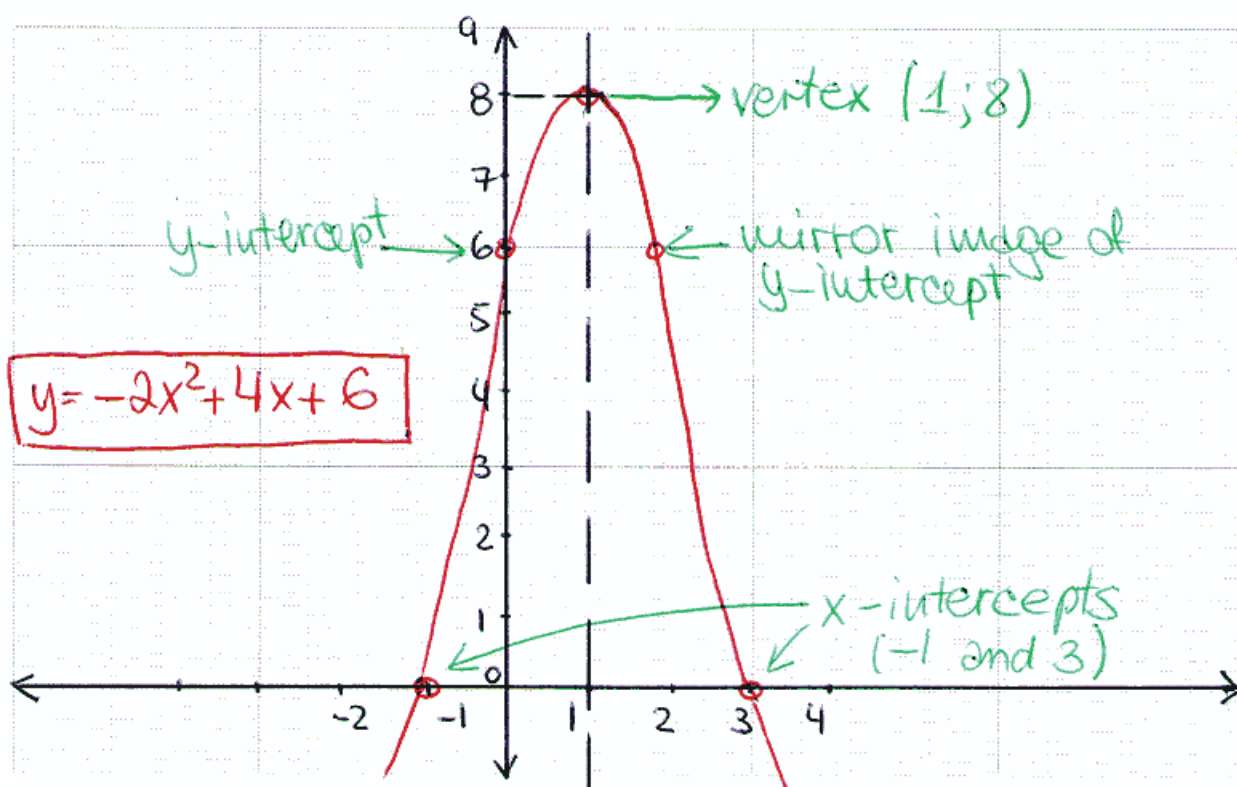 9
8
vertex (1;8)
7
y-intercept
6
mirror image of
y-intercept
5
y=-2x²+4x+6
4
3
2
1
x-intercepts
(-1 and 3)
0
-2 -1 1 2 3 4